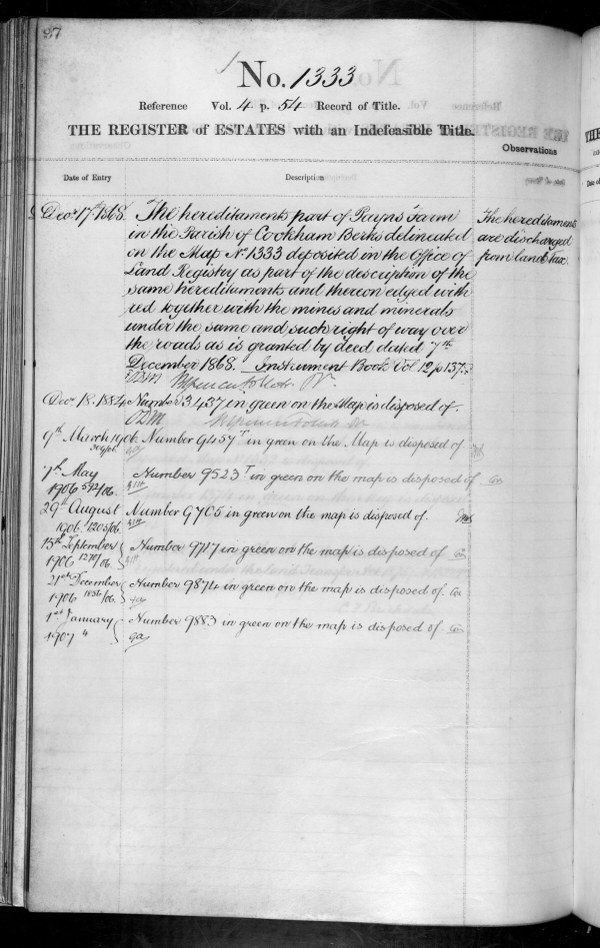 37
No. 1333
Reference Vol. 4 p. 54 Record of Title.
THE REGISTER of ESTATES with an Indefeasible Title.
Observations
Date of Entry
Description
Decr. 17th 1868. The hereditaments part of Payns Farm
in the Parish of Cookham Berks delineated
on the Map No. 1333 deposited in the Office of
Land Registry as part of the description of the
same hereditaments and thereon edged with
red together with the mines and minerals
under the same and such right of way over
the roads as is granted by deed dated 7th
December 1868. Instrument Book Vol 12 p 137.
The hereditaments
are discharged
from land tax.
Decr. 18. 1884 Number 3437 in green on the Map is disposed of.
9th March 1906 Number 9457 T in green on the Map is disposed of
7th May
1906 592/06. Number 9523 T in green on the map is disposed of
29th August
1906. 1205/06. Number 9705 in green on the map is disposed of.
15th September
1906 1270/06. Number 9717 in green on the map is disposed of
21st December
1906 1856/06. Number 9874 in green on the map is disposed of
1st January
1907 " Number 9883 in green on the map is disposed of